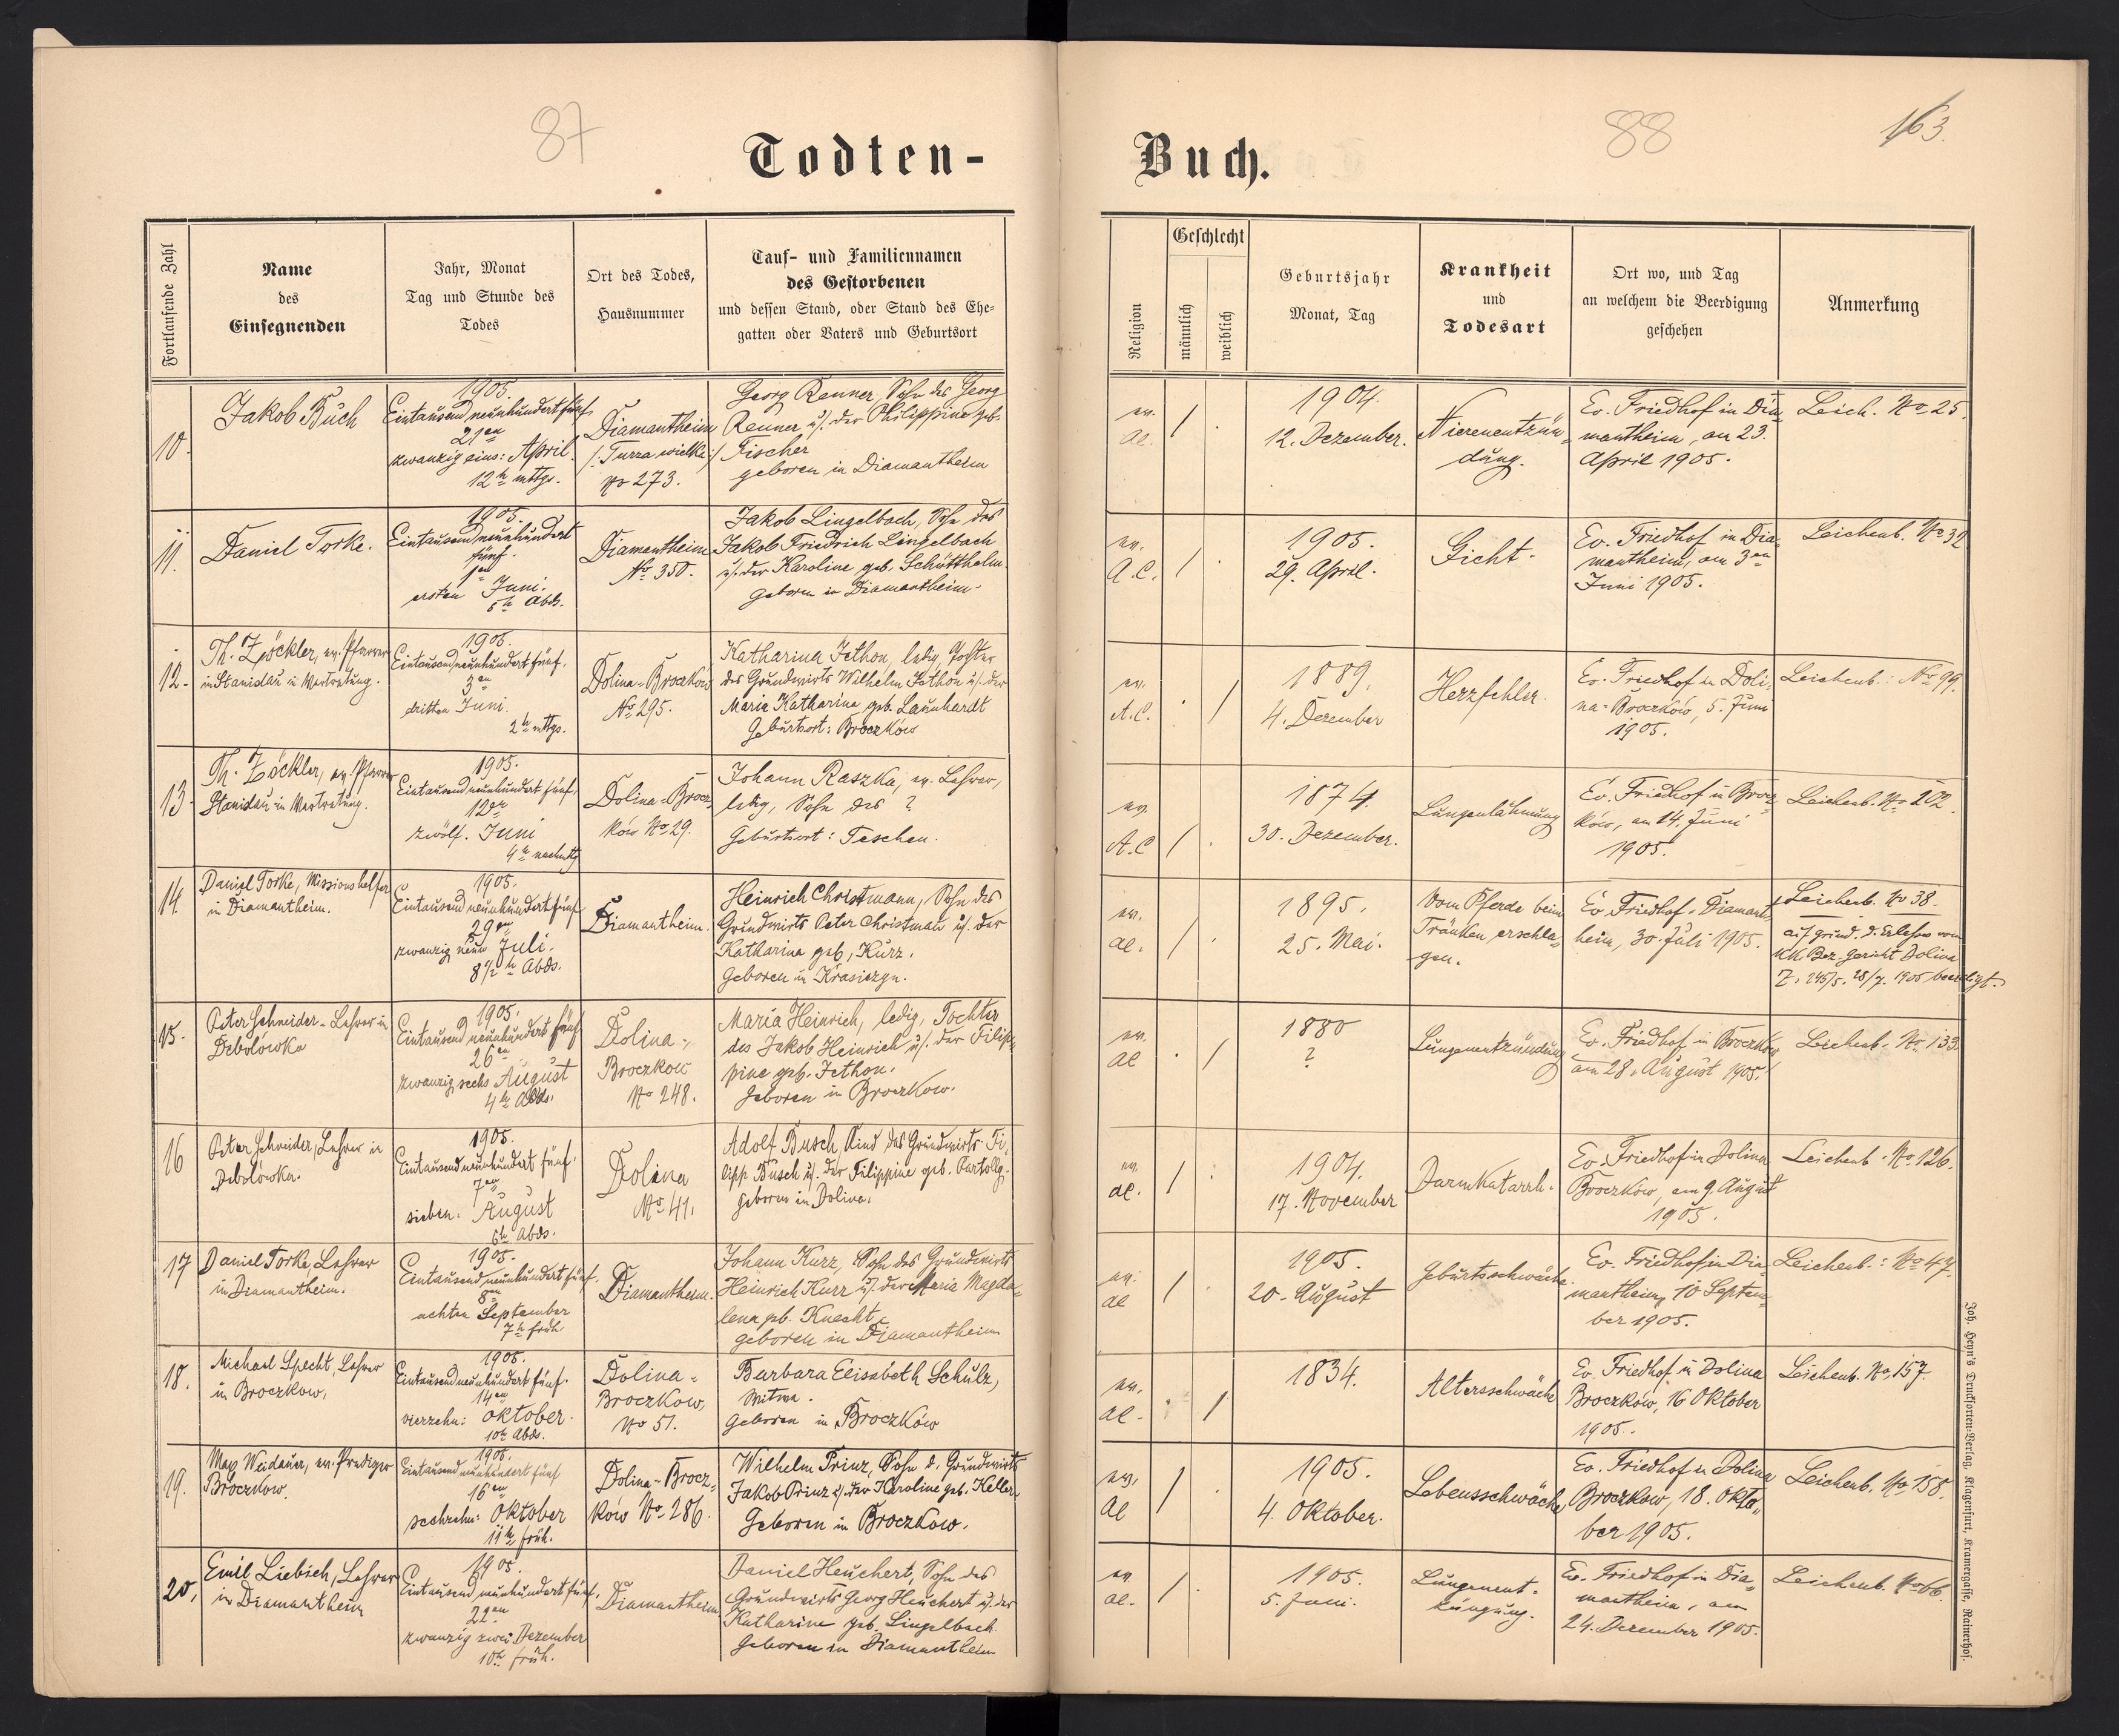 87
Todten-
Fortlaufende Zahl
Name
des
Einsegnenden
Jahr, Monat
Tag und Stunde des
Todes
Ort des Todes,
Hausnummer
Tauf- und Familiennamen
des Gestorbenen
und dessen Stand, oder Stand des Ehe-
gatten oder Vaters und Geburtsort
10.
Jakob Buch
1905.
Eintausendneunhundertfünf
21en
zwanzig eins: April.
12h mttgs.
Diamantheim
/: Turza wielka :/
No 273.
Georg Renner, Sohn des Georg
Renner u/. der Philippine geb.
Fischer
geboren in Diamantheim
11.
Daniel Torke.
1905.
Eintausendneunhundert
fünf.
1en
ersten Juni.
5h Abds.
Diamantheim
No 350.
Jakob Lingelbach, Sohn des
Jakob Friedrich Lingelbach
u/. der Karoline geb. Schütthelm.
geboren in Diamantheim.
12.
Th. Zöckler, ev. Pfarrer
in Stanislau in Vertretung.
1905.
Eintausendneunhundertfünf.
3en
dritten Juni.
2h mttgs.
Dolina-Broczków
No 295.
Katharina Jethon, ledig, Tochter
des Grundwirts Wilhelm Jethon u/. der
Maria Katharina geb. Launhardt
Geburtsort: Broczków
13.
Th. Zöckler, ev. Pfarrer
Stanislau in Vertretung.
1905.
Eintausendneunhundert fünf,
12en
zwölf. Juni
4h nachmttg
Dolina-Brocz
ków No 29.
Johann Raszka, ev. Lehrer,
ledig, Sohn des ?
Geburtsort: Teschen.
14.
Daniel Torke, Missionshelfer
in Diamantheim.
1905.
Eintausendneunhundertfünf
29en
zwanzig neun Juli.
8 1/2 h Abds.
Diamantheim.
Heinrich Christmann, Sohn des
Grundwirts Peter Christman u/. der
Katharina geb, Kurz.
Geboren in Krasiczyn.
15.
Peter Schneider - Lehrer in
Debolówka
1905.
Eintausend neunhundert fünf
26en
zwanzig sechs August
4h Abds.
Dolina-
Broczkow
No 248.
Maria Heinrich, ledig, Tochter
des Jakob Heinrich u/. der Filip-
pine geb. Jethon.
Geboren in Broczkow.
16
Peter Schneider, Lehrer in
Debolówka.
1905.
Eintausendneunhundert fünf.
7en
sieben. August
6h Abds.
Dolina
No 41.
Adolf Busch, Kind des Grundwirts Fi-
lipp Busch u/. der Filippine geb.
geboren in Dolina.
17
Daniel Torke, Lehrer
in Diamantheim.
1905.
Eintausendneunhundert fünf.
8en
achten September
7h früh
Diamantheim.
Johann Kurz, Sohn des Grundwirts
Heinrich Kurz u/. der Maria Magda-
lena geb. Knecht
geboren in Diamantheim
18.
Michael Specht, Lehrer
in Broczkow,
1905.
Eintausendneunhundert fünf.
14en
vierzehn: Oktober.
10h Abds.
Dolina-
Broczkow,
No 51.
Barbara Elisabeth Schulz,
Witwe.
Geboren in Broczków
19.
Max Weidauer, ev. Prediger
Broczkow.
1905.
Eintausend neunhundert fünf
16en
sechzehn: Oktober
11 1/2 früh.
Dolina-Brocz-
ków No 286.
Wilhelm Prinz, Sohn d. Grundwirts
Jakob Prinz u/. der Karoline geb. Keller.
Geboren in Broczkow.
20,
Emil Liebich, Lehrer
in Diamantheim
1905.
Eintausend neunhundert fünf,
22en
zwanzig zwei Dezember
10h früh.
Diamantheim,
Daniel Heuchert, Sohn des
Grundwirts Georg Heuchert u/. der
Katharine geb. Lingelbach.
Geboren in Diamantheim
88
163.
Buch.
Religion
Geschlecht
männlich
weiblich
Geburtsjahr
Monat, Tag
Krankheit
und
Todesart
Ort wo, und Tag
an welchem die Beerdigung
geschehen
Anmerkung
ev.
ac.
/
.
1904.
12. Dezember.
Nierenentzün-
dung.
Ev. Friedhof in Dia-
mantheim, am 23.
April 1905.
Leich. No 25.
ev.
A.C.
/
.
1905.
29. April.
Gicht.
Ev. Friedhof in Dia-
mantheim, am 3en
Juni 1905.
Leichenb. No 32
ev.
A.C.
.
/
1889.
4. Dezember
Herzfehler.
Ev. Friedhof in Doli-
na-Broczków, 5. Juni
1905.
Leichenb.: No 99.
ev.
A.C
/
.
1874.
30. Dezember.
Lungenlähmung
Ev. Friedhof in Brocz
ków, am 14. Juni
1905.
Leichenb. No 202.
ev.
ac.
/
.
1895.
25. Mai.
Vom Pferde beim
Tränken erschla-
gen.
Ev Friedhof. Diamant-
heim, 30. Juli 1905.
Leichenb. No 38.
auf grund. d. Erlasses vom
kk. Bez. Gericht Dolina
Z. 245/5. 28/7. 1905 beerdigt.
ev.
ac
.
/
1880
?
Lungenentzündung
Ev. Friedhof in Broczkow
am 28. August 1905.
Leichenb. No 133
ev.
ac.
/
.
1904.
17. November
Darmkatarrh.
Ev. Friedhof in Dolina
Broczków, am 9. August
1905.
Leichenb. No. 126.
ev.
ac
/
.
1905.
20. August
Geburtsschwäche.
Ev. Friedhof in Dia-
mantheim, 10 Septem-
ber 1905.
Leichenb.: No 47.
ev.
ac.
.
/
1834.
Altersschwäche
Ev. Friedhof in Dolina
Broczków, 16 Oktober
1905.
Leichenb. No, 157.
ev,
ac
/
.
1905.
4. Oktober.
Lebensschwäche,
Ev. Friedhof in Dolina
Broczkow, 18. Okto-
ber 1905.
Leichenb. No 158.
ev
ac.
/
.
1905.
5. Juni.
Lungenent-
zündung.
Ev. Friedhof in Dia-
mantheim, am
24. Dezember 1905.
Leichenb. No 66.
Joh. Heyn's Drucksorten-Verlag, Klagenfurt, Kramergasse, Rainerhof.